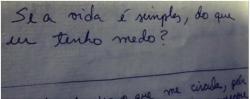 Se a vida é simples, do que
eu tenho medo?
que me circula, por